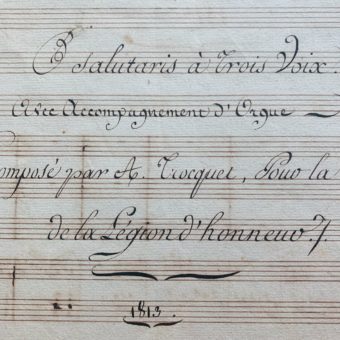 O salutaris à Trois Voix.
Avec Accompagnement d'Orgue
omposé par A. Trocquet, Pour la
de la Légion d'honneur.
1813.